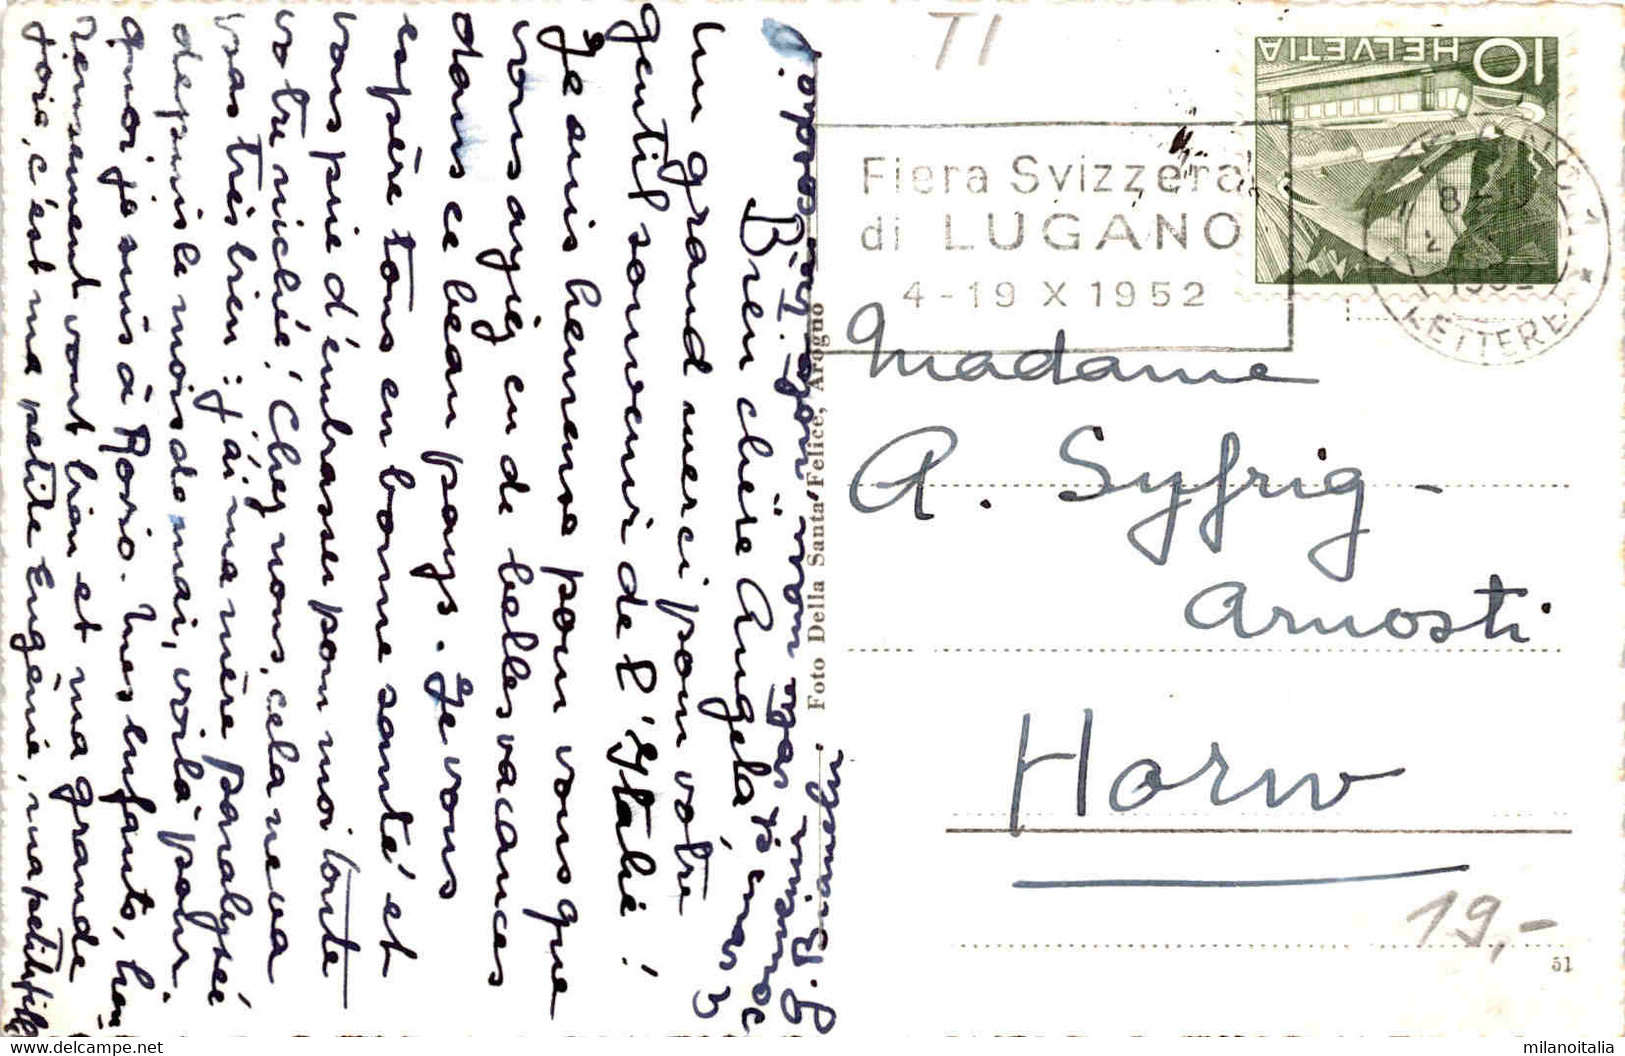 Bien chère Angela,
Un grand merci pour votre
gentil souvenir de l'Italie!
Je suis heureuse pour vous que
vous ayiez eu de belles vacances
dans ce beau pays. Je vous
espère tous en bonne santé et
vous prie d'embrasser pour moi toute
votre nichée! Chez nous, cela ne va
pas très bien: j'ai ma mère paralysée
depuis le mois de mai, voilà pour
quoi je suis à Rovio. Mes enfants, heu
reusement vont bien et ma grande
joie, c'est ma petite Eugénie, ma petite fille
Foto Della Santa Felice, Arogno
TI
Fiera Svizzera
di LUGANO
4-19 X 1952
10 HELVETIA
LUGANO 1
1952
LETTERE
Madame
A. Syfrig-
Arnosti
Horw
19,-
51
milanoitalia